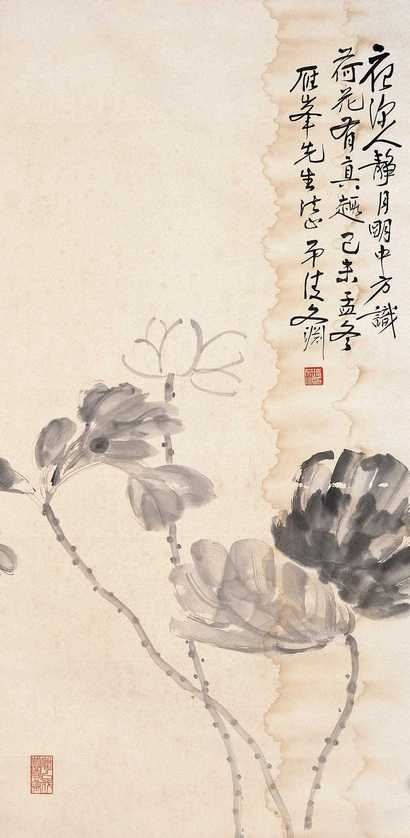 夜深人静月明中方識
荷花有真趣己未孟冬
雁峯先生法正 弟陈文渊